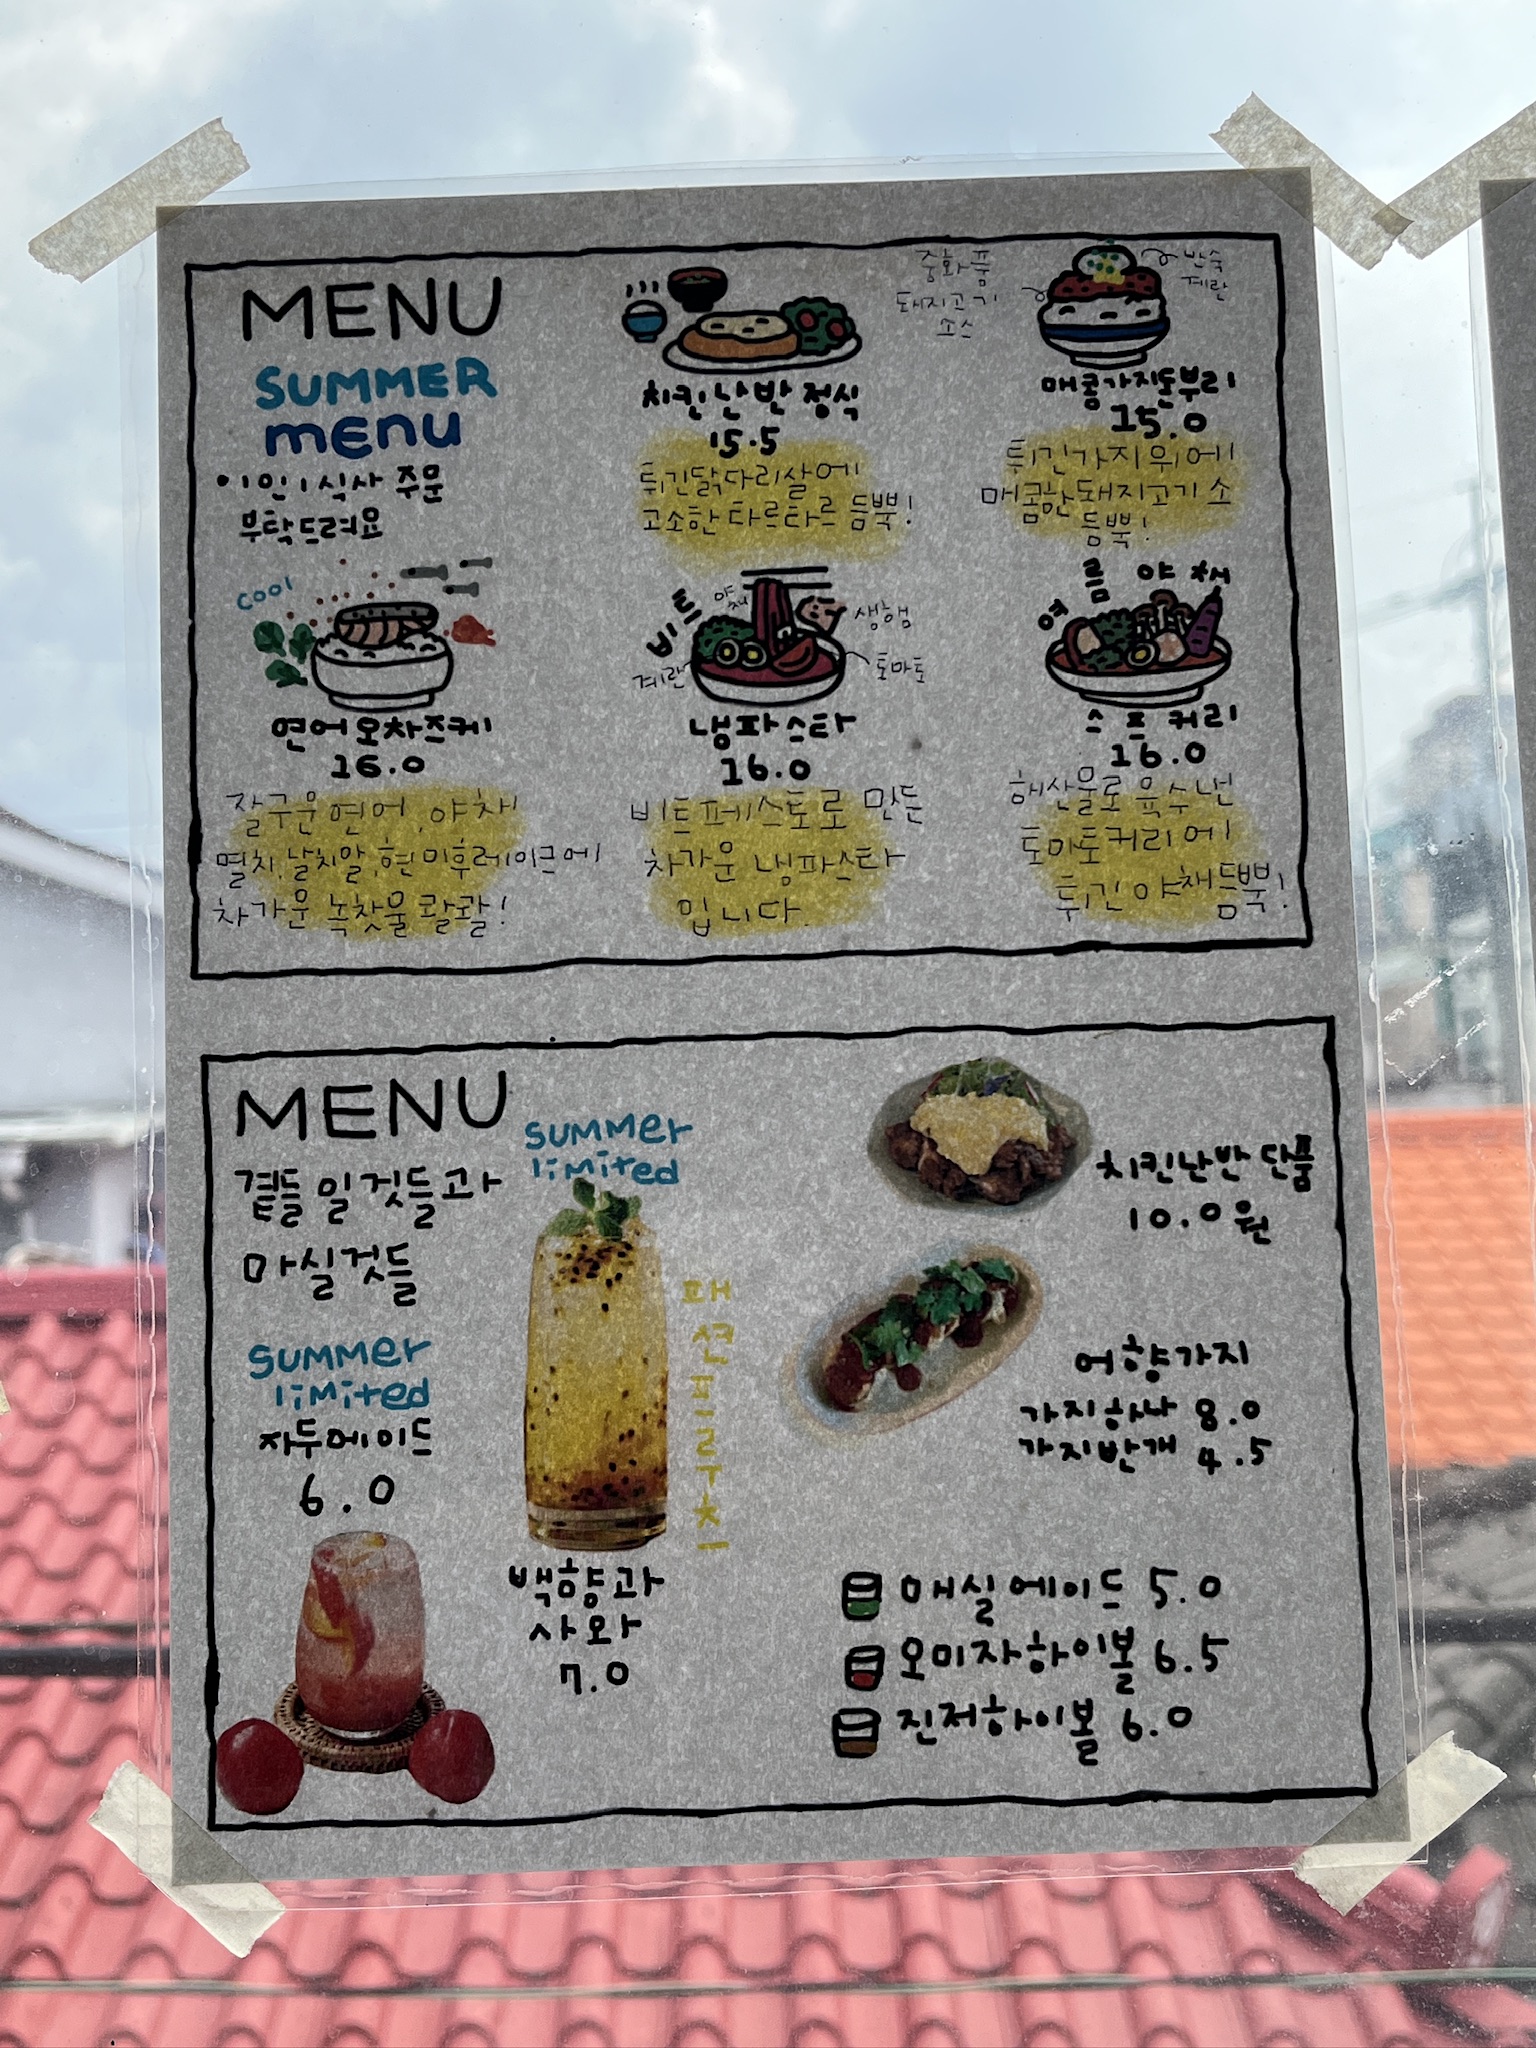 MENU
SUMMER
MENU
1인 1식사 주문
부탁드려요
치킨난반 정식
15.5
튀긴닭다리살에
고소한 타르타르 듬뿍!
중화풍
돼지고기
소스
반숙
계란
매콤가지돈부리
15.0
튀긴가지위에
매콤한돼지고기 소
듬뿍!
COOL
연어오차즈케
16.0
잘구운연어,야채
멸치,날치알,현미후레이크에
차가운 녹찻물 콸콸!
비트
야채
생햄
계란
토마토
냉파스타
16.0
비트페스토로 만든
차가운 냉파스타
입니다.
여름야채
스프커리
16.0
해산물로 육수낸
토마토커리에
튀긴야채듬뿍!
MENU
곁들일것들과
마실것들
summer
limited
자두에이드
6.0
summer
limited
패션프루츠
백향과
사와
7.0
치킨난반단품
10.0원
어향가지
가지하나 8.0
가지반개 4.5
매실에이드 5.0
오미자하이볼 6.5
진저하이볼 6.0